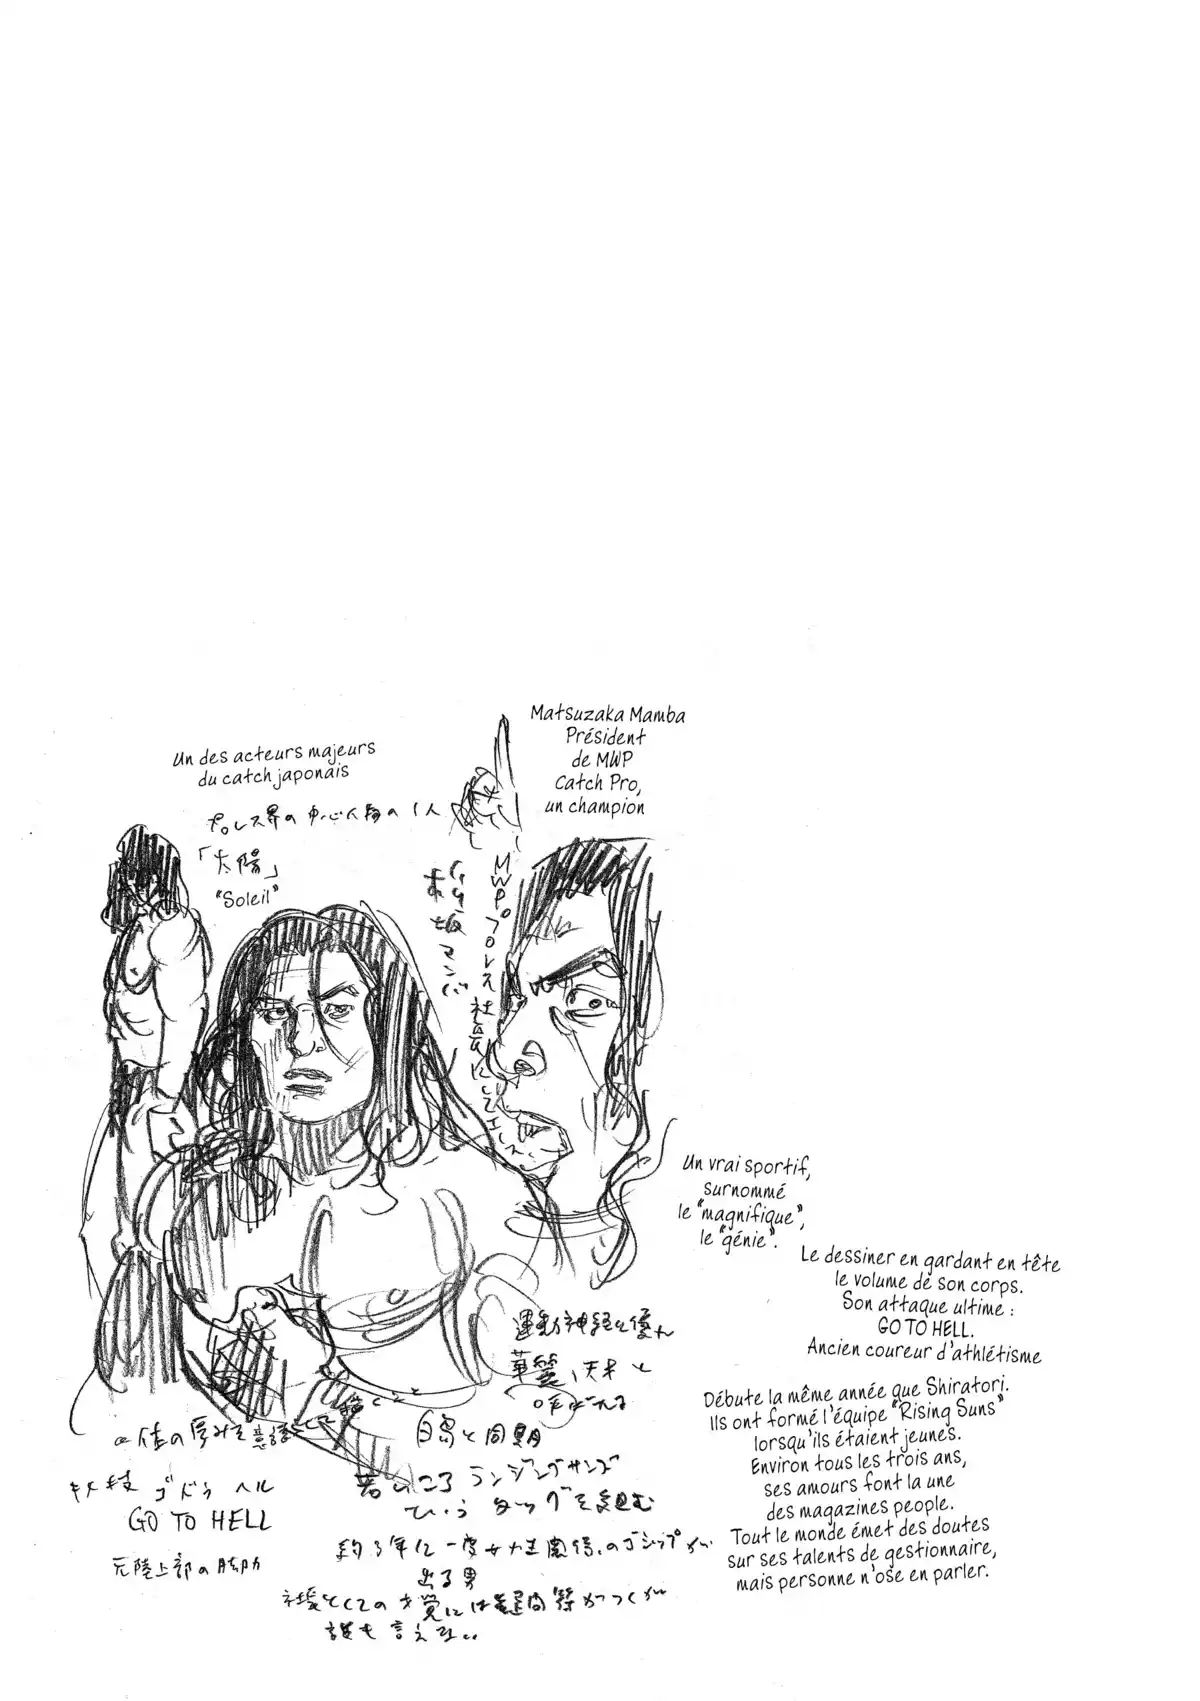 Matsuzaka Mamba
Président
de MWP
Catch Pro,
un champion
Un des acteurs majeurs
du catch japonais
プロレス界の中心人物の1人
「太陽」
"Soleil"
松坂マンバ
MWPプロレス社長にしてエース
Un vrai sportif,
surnommé
le "magnifique",
le "génie".
Le dessiner en gardant en tête
le volume de son corps.
Son attaque ultime :
GO TO HELL.
Ancien coureur d'athlétisme
運動神経に優れ
華麗、天才と
呼ばれる
体の厚みを意識して描くこと
白鳥と同期
若いころランジングサンズ
というタッグを組む
ゴトゥヘル
GO TO HELL
元陸上部の脚力
約3年に一度女性関係のゴシップが
出る男
社長としての才覚には疑問符がつくが
誰も言えない..
Débute la même année que Shiratori.
Ils ont formé l'équipe "Rising Suns"
lorsqu'ils étaient jeunes.
Environ tous les trois ans,
ses amours font la une
des magazines people.
Tout le monde émet des doutes
sur ses talents de gestionnaire,
mais personne n'ose en parler.